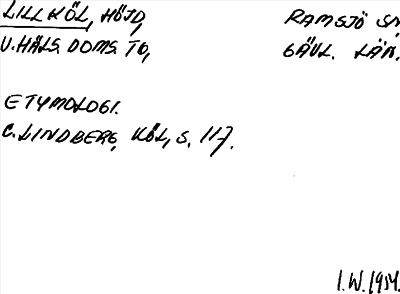 LILLKÖL, HÖJD, RAMSJÖ SN,
V. HÄLS. DOMS. TO, GÄVL. LÄN.
ETYMOLOGI.
C. LINDBERG, KÖL, S. 117.
I.W. 1954.